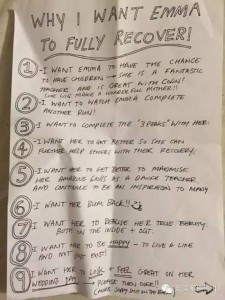 WHY I WANT EMMA
TO FULLY RECOVER!
1 - I WANT EMMA TO HAVE THE CHANCE
TO HAVE CHILDREN - SHE IS A FANTASTIC
TEACHER AND IS GREAT WITH CHILDREN!
SHE WILL MAKE A WONDERFUL MOTHER!!
2 - I WANT TO WATCH EMMA COMPLETE
ANOTHER RUN!
3 - I WANT TO COMPLETE THE "3 PEAKS" WITH HER.
4 - I WANT HER TO GET BETTER SO SHE CAN
FURTHER HELP OTHERS WITH THEIR RECOVERY.
5 - I WANT HER TO GET BETTER TO MAXIMISE
HER AMAZING ABILITY AS A DANCE TEACHER
AND CONTINUE TO BE AN INSPIRATION TO MANY
6 - I WANT HER BUM BACK!!
7 - I WANT HER TO REALISE HER TRUE BEAUTY
BOTH ON THE INSIDE + OUT.
8 - I WANT HER TO BE HAPPY - TO LIVE A LIFE
AND NOT JUST EXIST!
9 - I WANT HER TO LOOK + FEEL GREAT ON HER
WEDDING DAY → PLEASE TURN OVER!!